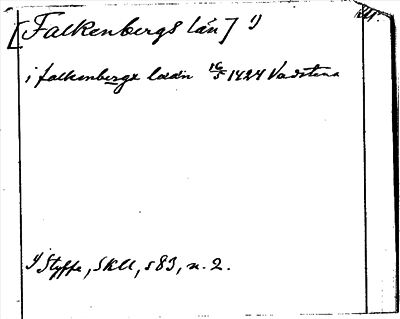 [Falkenbergs län] 1)
i falkenbergx lææn 16/5 1424 Vadstena
1) Styffe, SKU, s 83, n. 2.